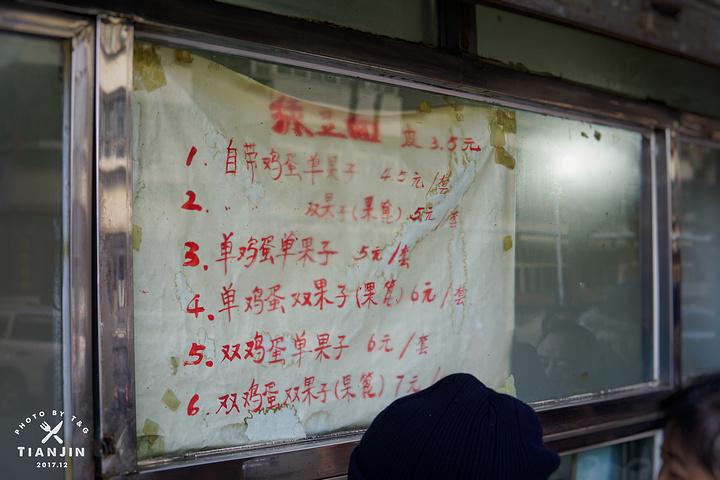 绿豆面 皮 3.5元
1. 自带鸡蛋单果子 4.5元/套
2. 〃 双果子(果篦) 5元/套
3. 单鸡蛋单果子 5元/套
4. 单鸡蛋双果子(果篦) 6元/套
5. 双鸡蛋单果子 6元/套
6. 双鸡蛋双果子(果篦) 7元/
PHOTO BY T&G
TIANJIN
2017.12